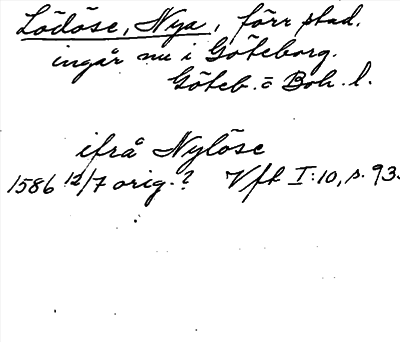 Lödöse, Nya, förr stad.
ingår nu i Göteborg.
Göteb. o Boh. l.
ifrå Nylöse
1586 12/7 orig.? Vfk I:10, s. 93.